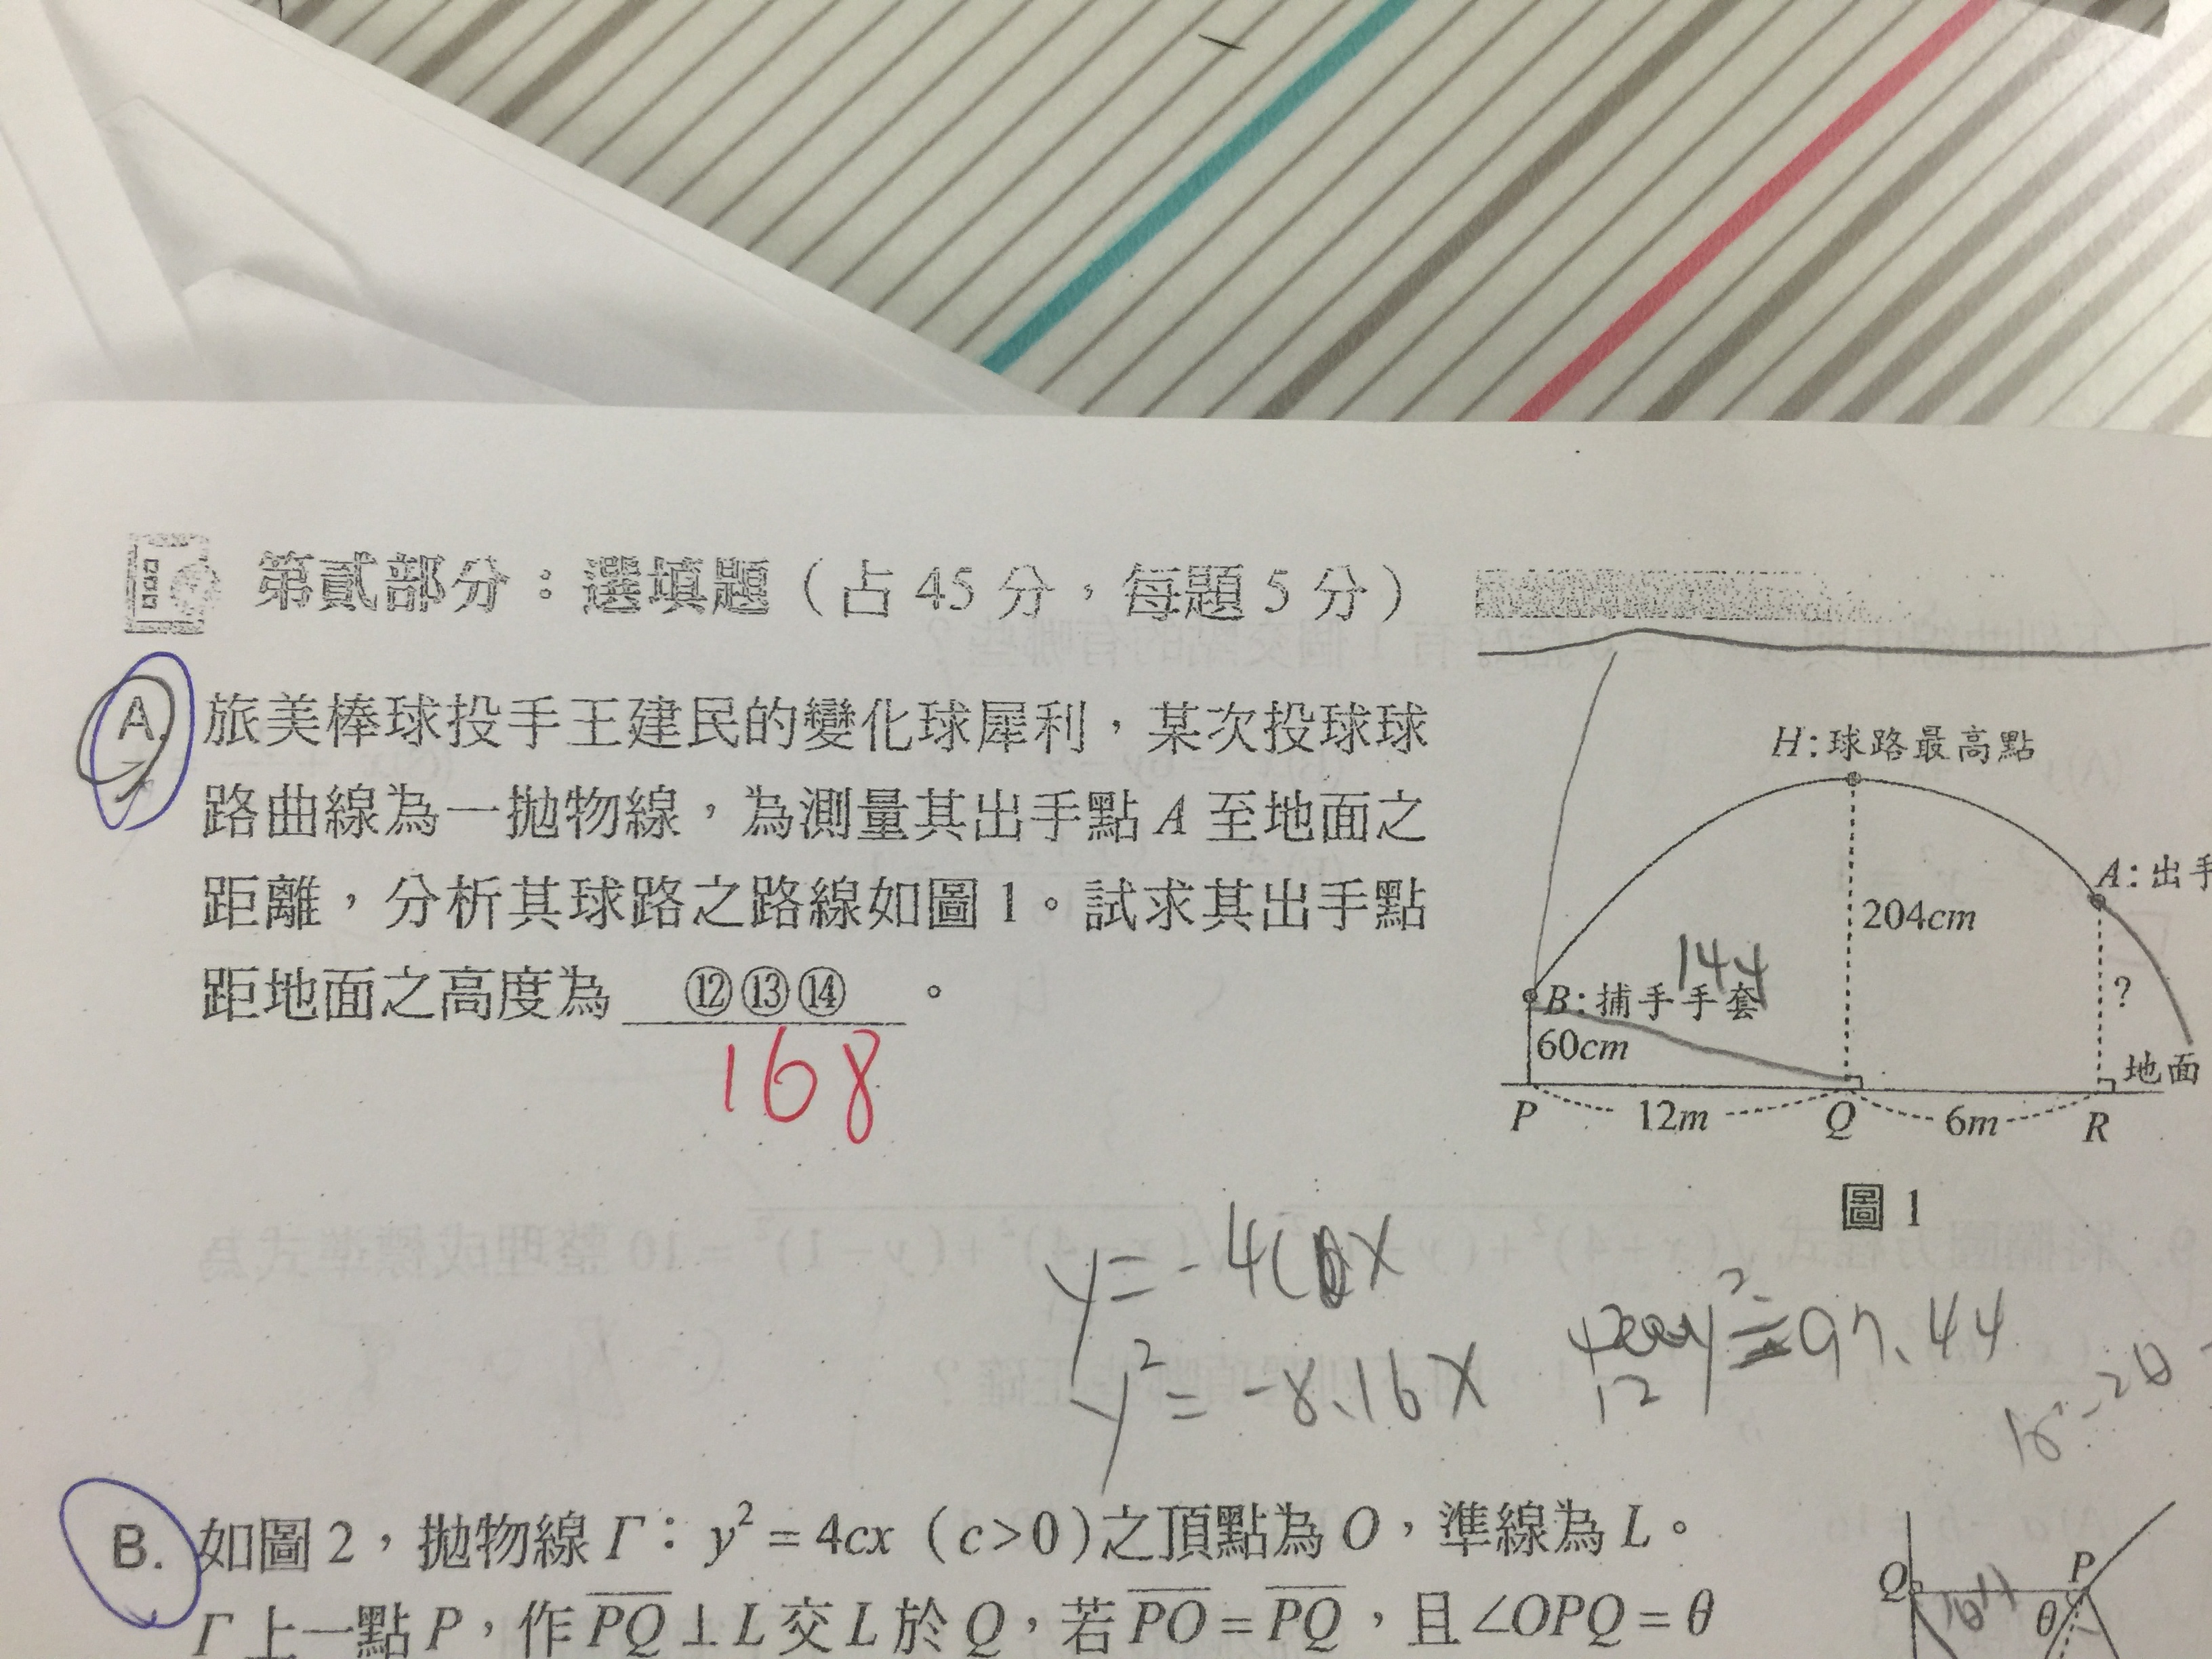 第貳部分：選填題（占 45 分，每題 5 分）
A. 旅美棒球投手王建民的變化球犀利，某次投球球
路曲線為一拋物線，為測量其出手點 A 至地面之
距離，分析其球路之路線如圖 1。試求其出手點
距地面之高度為 ⑫⑬⑭ 。
168
H:球路最高點
A:出手
204cm
144
B:捕手手套
?
60cm
地面
P 12m Q 6m R
圖 1
y²=-8.16x
97.44
12
B. 如圖 2，拋物線 Γ：y² = 4cx（c>0）之頂點為 O，準線為 L。
Γ 上一點 P，作 PQ⊥L 交 L 於 Q，若 PO = PQ，且∠OPQ = θ
Q P
θ